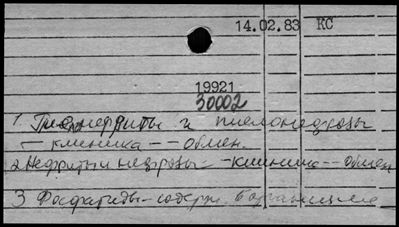 14.02.83 КС
19921
30002
1 Пиелонефриты и пиелонефрозы
— клиника — — обмен.
2 Нефриты и нефрозы — — клиника — — обмен
3 Фосфатиды — содерж.